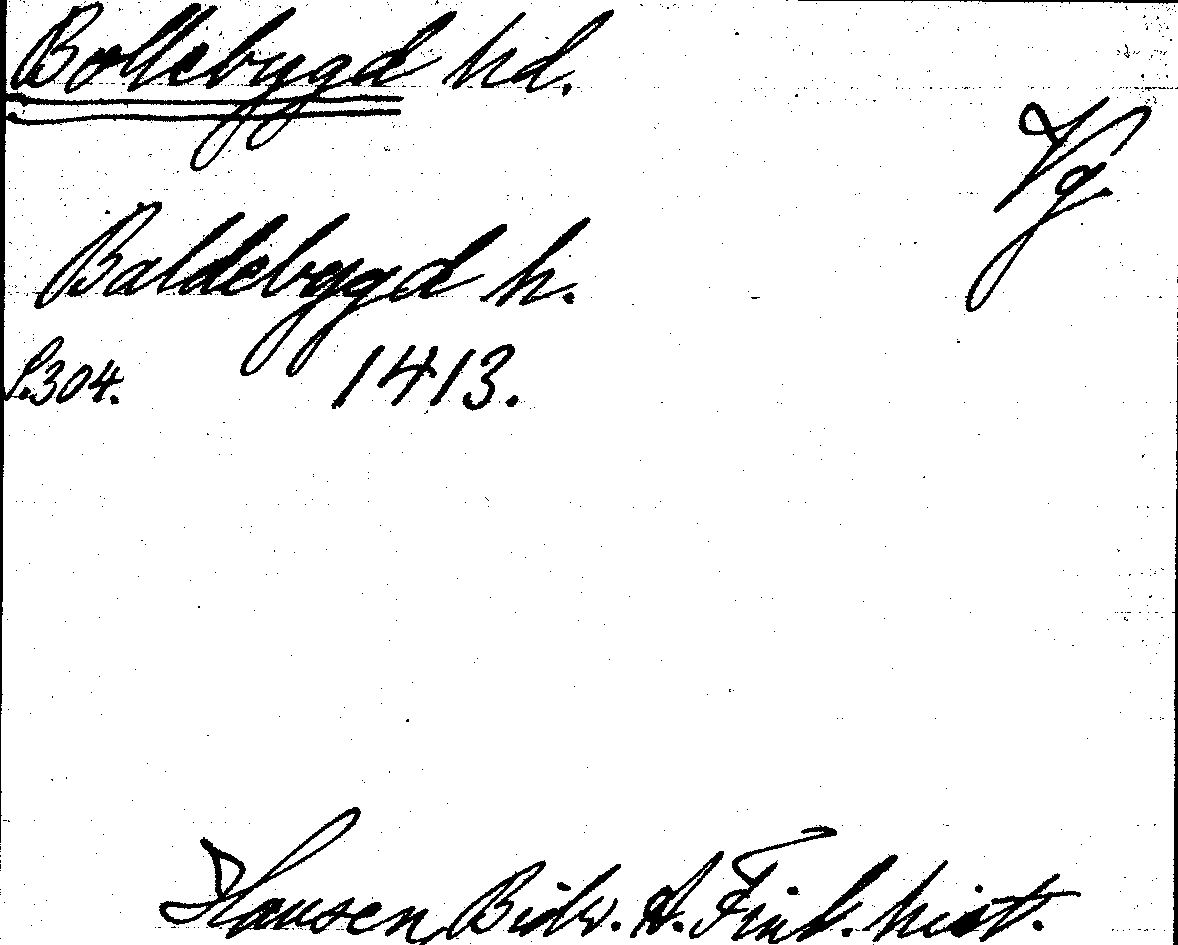 Bollebygd hd.
Vg.
Baldebygd h.
S.304. 1413.
Hausen, Bidr. t. Finl. hist.